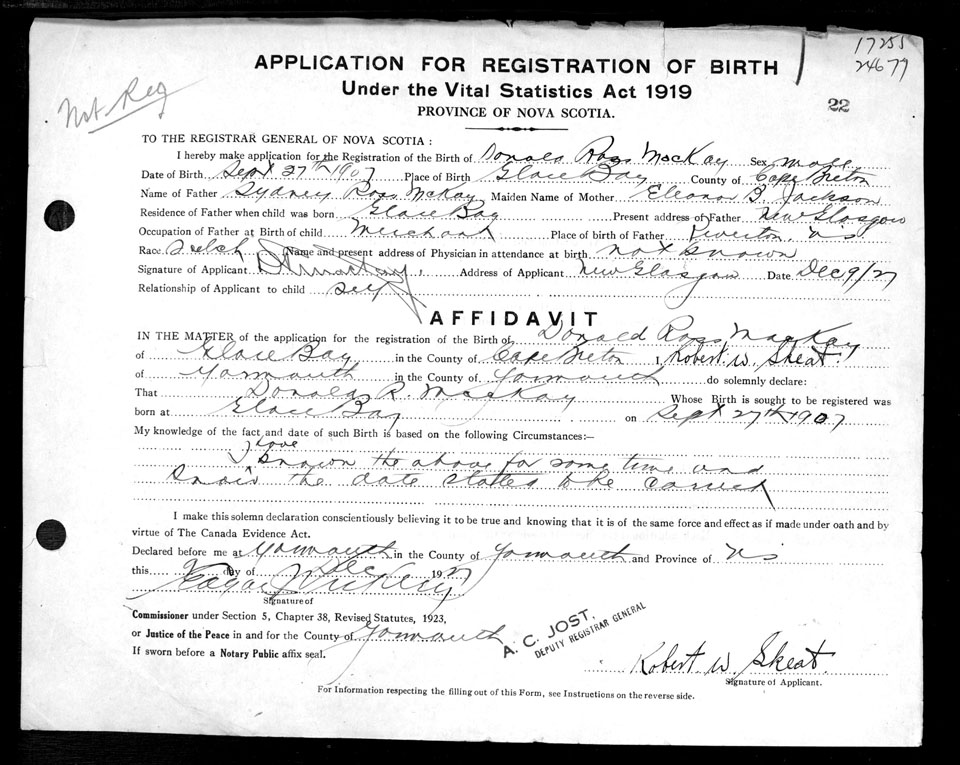 17255
24677
Not Reg
APPLICATION FOR REGISTRATION OF BIRTH
Under the Vital Statistics Act 1919
22
PROVINCE OF NOVA SCOTIA.
TO THE REGISTRAR GENERAL OF NOVA SCOTIA:
I hereby make application for the Registration of the Birth of Donald Ross MacKay Sex male
Date of Birth Sept 27th 1907 Place of Birth Glace Bay County of Cape Breton
Name of Father Sydney Ross McKay Maiden Name of Mother Eleanor J. Jackson
Residence of Father when child was born Glace Bay Present address of Father New Glasgow
Occupation of Father at Birth of child Merchant Place of birth of Father Riverton, NS
Race Name and present address of Physician in attendance at birth not known
Signature of Applicant Address of Applicant New Glasgow Date Dec 9/27
Relationship of Applicant to child self
AFFIDAVIT
IN THE MATTER of the application for the registration of the Birth of Donald Ross MacKay
of Glace Bay in the County of Cape Breton I, Robert W. Skeat.
of Yarmouth in the County of Yarmouth do solemnly declare:
That Donald R. MacKay Whose Birth is sought to be registered was
born at Glace Bay on Sept 27th 1907
My knowledge of the fact and date of such Birth is based on the following Circumstances:—
I have
known the above for some time and
know the date stated to be correct
I make this solemn declaration conscientiously believing it to be true and knowing that it is of the same force and effect as if made under oath and by
virtue of The Canada Evidence Act.
Declared before me at Yarmouth in the County of Yarmouth and Province of NS
this 9 day of Dec 1927
Signature of
Commissioner under Section 5, Chapter 38, Revised Statutes, 1923,
or Justice of the Peace in and for the County of Yarmouth
If sworn before a Notary Public affix seal.
A. C. JOST,
DEPUTY REGISTRAR GENERAL
Robert W. Skeat.
Signature of Applicant.
For Information respecting the filling out of this Form, see Instructions on the reverse side.